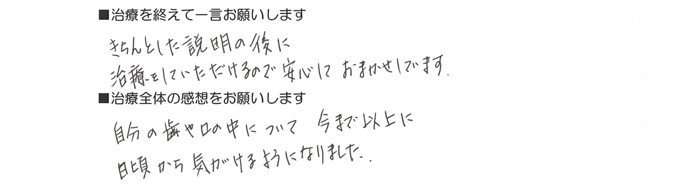 ■治療を終えて一言お願いします
きちんとした説明の後に
治療をしていただけるので安心して おまかせしてます.
■治療全体の感想をお願いします
自分の歯や口の中について 今まで以上に
日頃から気がけるようになりました.